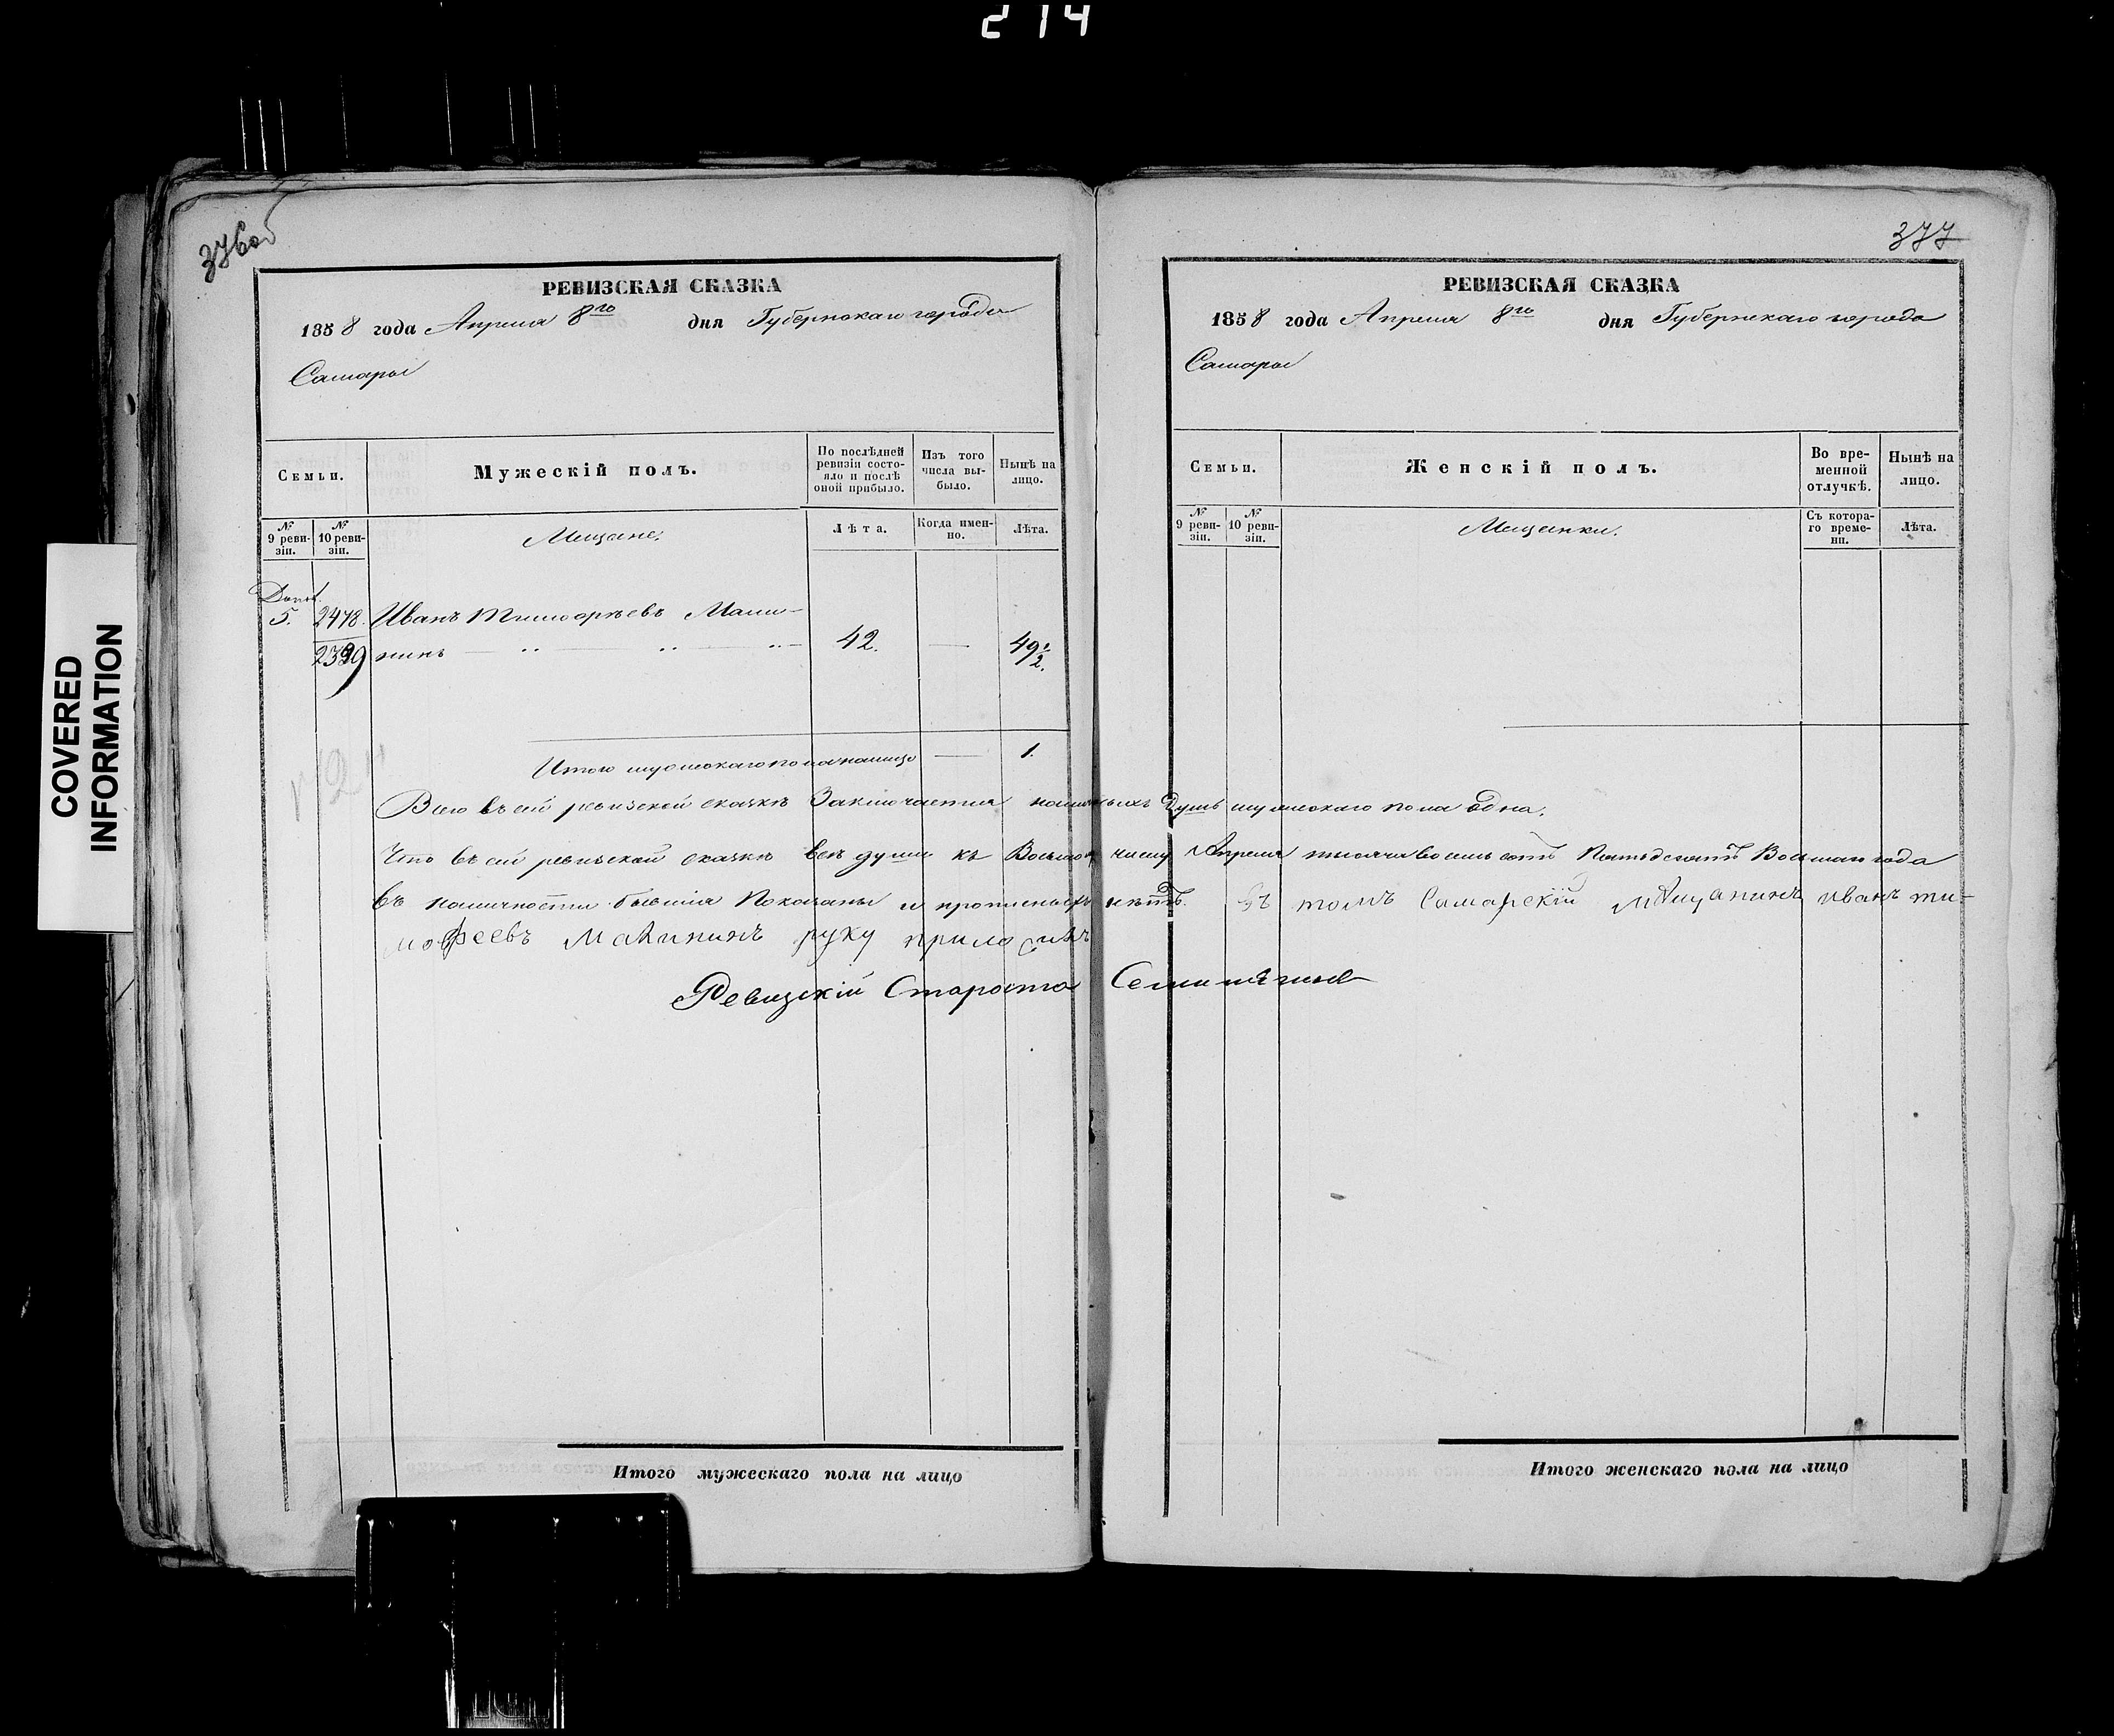 214
COVERED
INFORMATION
376об
РЕВИЗСКАЯ СКАЗКА
1858 года Апреля 8го дня Губернскаго города
Самары
Семьи.
Мужескій полъ.
По послѣдней ревизіи состояло и послѣ оной прибыло.
Изъ того числа выбыло.
Нынѣ на лицо.
№ 9 ревизіи.
№ 10 ревизіи.
Мещане.
Лѣта.
Когда именно.
Лѣта.
Допол.
5. 2478. Иванъ Тимофѣевъ Мали-
нинъ 42. — 49½.
Итого мужескаго пола налицо — 1.
377
РЕВИЗСКАЯ СКАЗКА
1858 года Апреля 8го дня Губернскаго города
Самары
Семьи.
Женскій полъ.
Во временной отлучкѣ.
Нынѣ на лицо.
№ 9 ревизіи.
№ 10 ревизіи.
Мещанки.
Съ котораго времени.
Лѣта.
Всего въ сей ревизской сказкѣ Заключается наличныхъ Душъ мужескаго пола одна.
Что въ сей ревизской сказкѣ всѣ души къ Восьмому числу Апреля тысяча восемь сотъ Пятьдесятъ Восьмаго года
въ наличности бывшія Показаны и прописныхъ нѣтъ. Въ томъ Самарскій Мещанинъ иванъ ти-
мофеевъ Малининъ руку приложилъ
Ревизскій Староста
Итого мужескаго пола на лицо
Итого женскаго пола на лицо